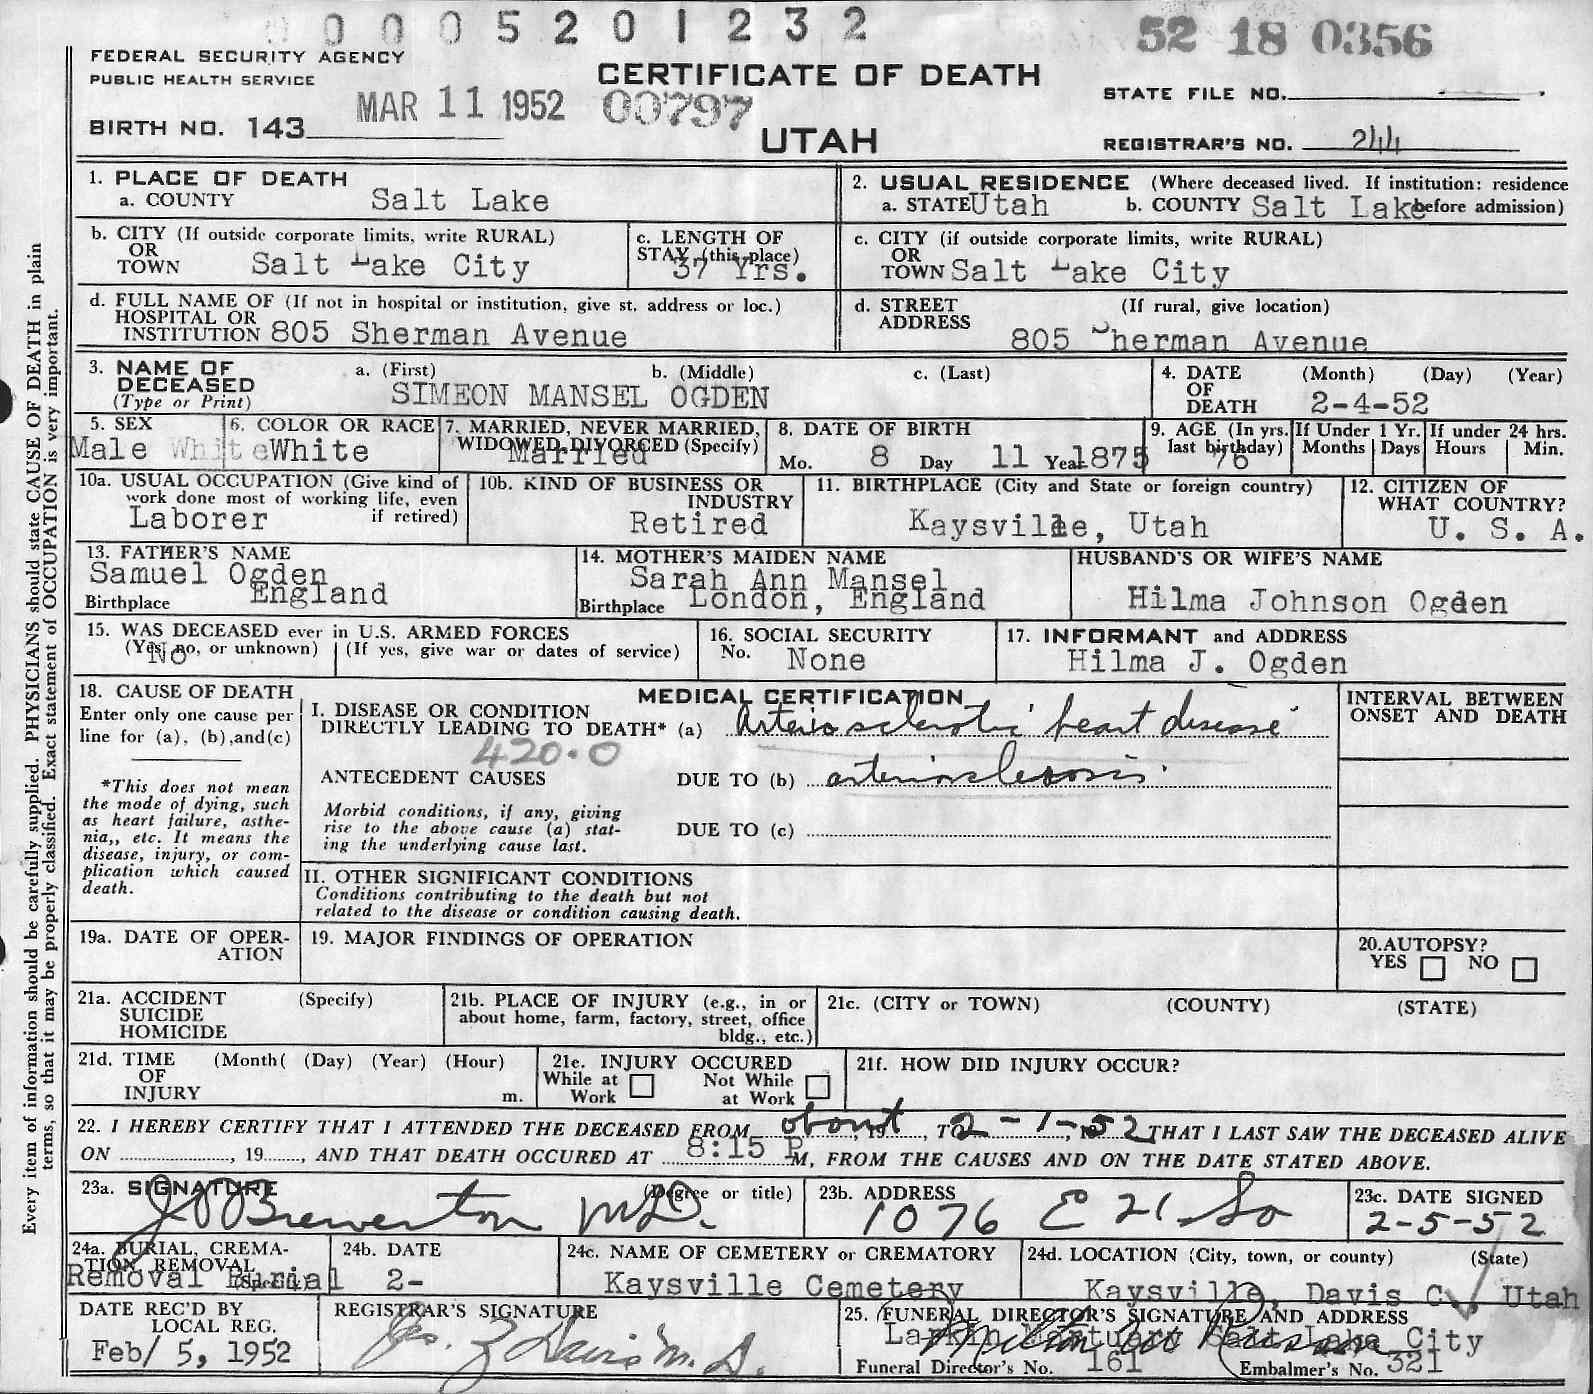 0 0 0 5 2 0 1 2 3 2
52 18 0356
FEDERAL SECURITY AGENCY
PUBLIC HEALTH SERVICE
CERTIFICATE OF DEATH
STATE FILE NO.
MAR 11 1952 00797
BIRTH NO. 143
UTAH
REGISTRAR'S NO. 244
1. PLACE OF DEATH
a. COUNTY Salt Lake
2. USUAL RESIDENCE (Where deceased lived. If institution: residence
a. STATE Utah b. COUNTY Salt Lake before admission)
b. CITY (If outside corporate limits, write RURAL)
OR
TOWN Salt Lake City
c. LENGTH OF
STAY (this place)
37 Yrs.
c. CITY (if outside corporate limits, write RURAL)
OR
TOWN Salt Lake City
d. FULL NAME OF (If not in hospital or institution, give st. address or loc.)
HOSPITAL OR
INSTITUTION 805 Sherman Avenue
d. STREET (If rural, give location)
ADDRESS
805 Sherman Avenue
3. NAME OF a. (First) b. (Middle) c. (Last)
DECEASED
(Type or Print) SIMEON MANSEL OGDEN
4. DATE (Month) (Day) (Year)
OF
DEATH 2-4-52
5. SEX
Male
6. COLOR OR RACE
White White
7. MARRIED, NEVER MARRIED,
WIDOWED, DIVORCED (Specify)
Married
8. DATE OF BIRTH
Mo. 8 Day 11 Year 1875
9. AGE (In yrs.
last birthday)
76
If Under 1 Yr.
Months Days
If under 24 hrs.
Hours Min.
10a. USUAL OCCUPATION (Give kind of
work done most of working life, even
if retired)
Laborer
10b. KIND OF BUSINESS OR
INDUSTRY
Retired
11. BIRTHPLACE (City and State or foreign country)
Kaysville, Utah
12. CITIZEN OF
WHAT COUNTRY?
U. S. A.
13. FATHER'S NAME
Samuel Ogden
Birthplace England
14. MOTHER'S MAIDEN NAME
Sarah Ann Mansel
Birthplace London, England
HUSBAND'S OR WIFE'S NAME
Hilma Johnson Ogden
15. WAS DECEASED ever in U.S. ARMED FORCES
(Yes, no, or unknown) (If yes, give war or dates of service)
No
16. SOCIAL SECURITY
No. None
17. INFORMANT and ADDRESS
Hilma J. Ogden
18. CAUSE OF DEATH
Enter only one cause per
line for (a), (b), and (c)
*This does not mean
the mode of dying, such
as heart failure, asthe-
nia,, etc. It means the
disease, injury, or com-
plication which caused
death.
MEDICAL CERTIFICATION
I. DISEASE OR CONDITION
DIRECTLY LEADING TO DEATH* (a) Arteriosclerotic heart disease
420.0
ANTECEDENT CAUSES DUE TO (b) arteriosclerosis
Morbid conditions, if any, giving
rise to the above cause (a) stat-
ing the underlying cause last.
DUE TO (c)
INTERVAL BETWEEN
ONSET AND DEATH
II. OTHER SIGNIFICANT CONDITIONS
Conditions contributing to the death but not
related to the disease or condition causing death.
19a. DATE OF OPER-
ATION
19. MAJOR FINDINGS OF OPERATION
20. AUTOPSY?
YES NO
21a. ACCIDENT (Specify)
SUICIDE
HOMICIDE
21b. PLACE OF INJURY (e.g., in or
about home, farm, factory, street, office
bldg., etc.)
21c. (CITY or TOWN) (COUNTY) (STATE)
21d. TIME (Month( (Day) (Year) (Hour)
OF
INJURY m.
21e. INJURY OCCURED
While at Work Not While at Work
21f. HOW DID INJURY OCCUR?
22. I HEREBY CERTIFY THAT I ATTENDED THE DECEASED FROM about, 19, TO 2-1-, 1952 THAT I LAST SAW THE DECEASED ALIVE
ON, 19, AND THAT DEATH OCCURED AT 8:15 P M, FROM THE CAUSES AND ON THE DATE STATED ABOVE.
23a. SIGNATURE (Degree or title)
J O Brewerton M.D.
23b. ADDRESS
1076 E 21 So
23c. DATE SIGNED
2-5-52
24a. BURIAL, CREMA-
TION, REMOVAL
(Specify)
Removal Burial
24b. DATE
2-
24c. NAME OF CEMETERY or CREMATORY
Kaysville Cemetery
24d. LOCATION (City, town, or county) (State)
Kaysville, Davis C, Utah
DATE REC'D BY
LOCAL REG.
Feb/ 5, 1952
REGISTRAR'S SIGNATURE
25. FUNERAL DIRECTOR'S SIGNATURE AND ADDRESS
Larkin Mortuary Salt Lake City
Funeral Director's No. 161 Embalmer's No. 321
Every item of information should be carefully supplied. PHYSICIANS should state CAUSE OF DEATH in plain
terms, so that it may be properly classified. Exact statement of OCCUPATION is very important.